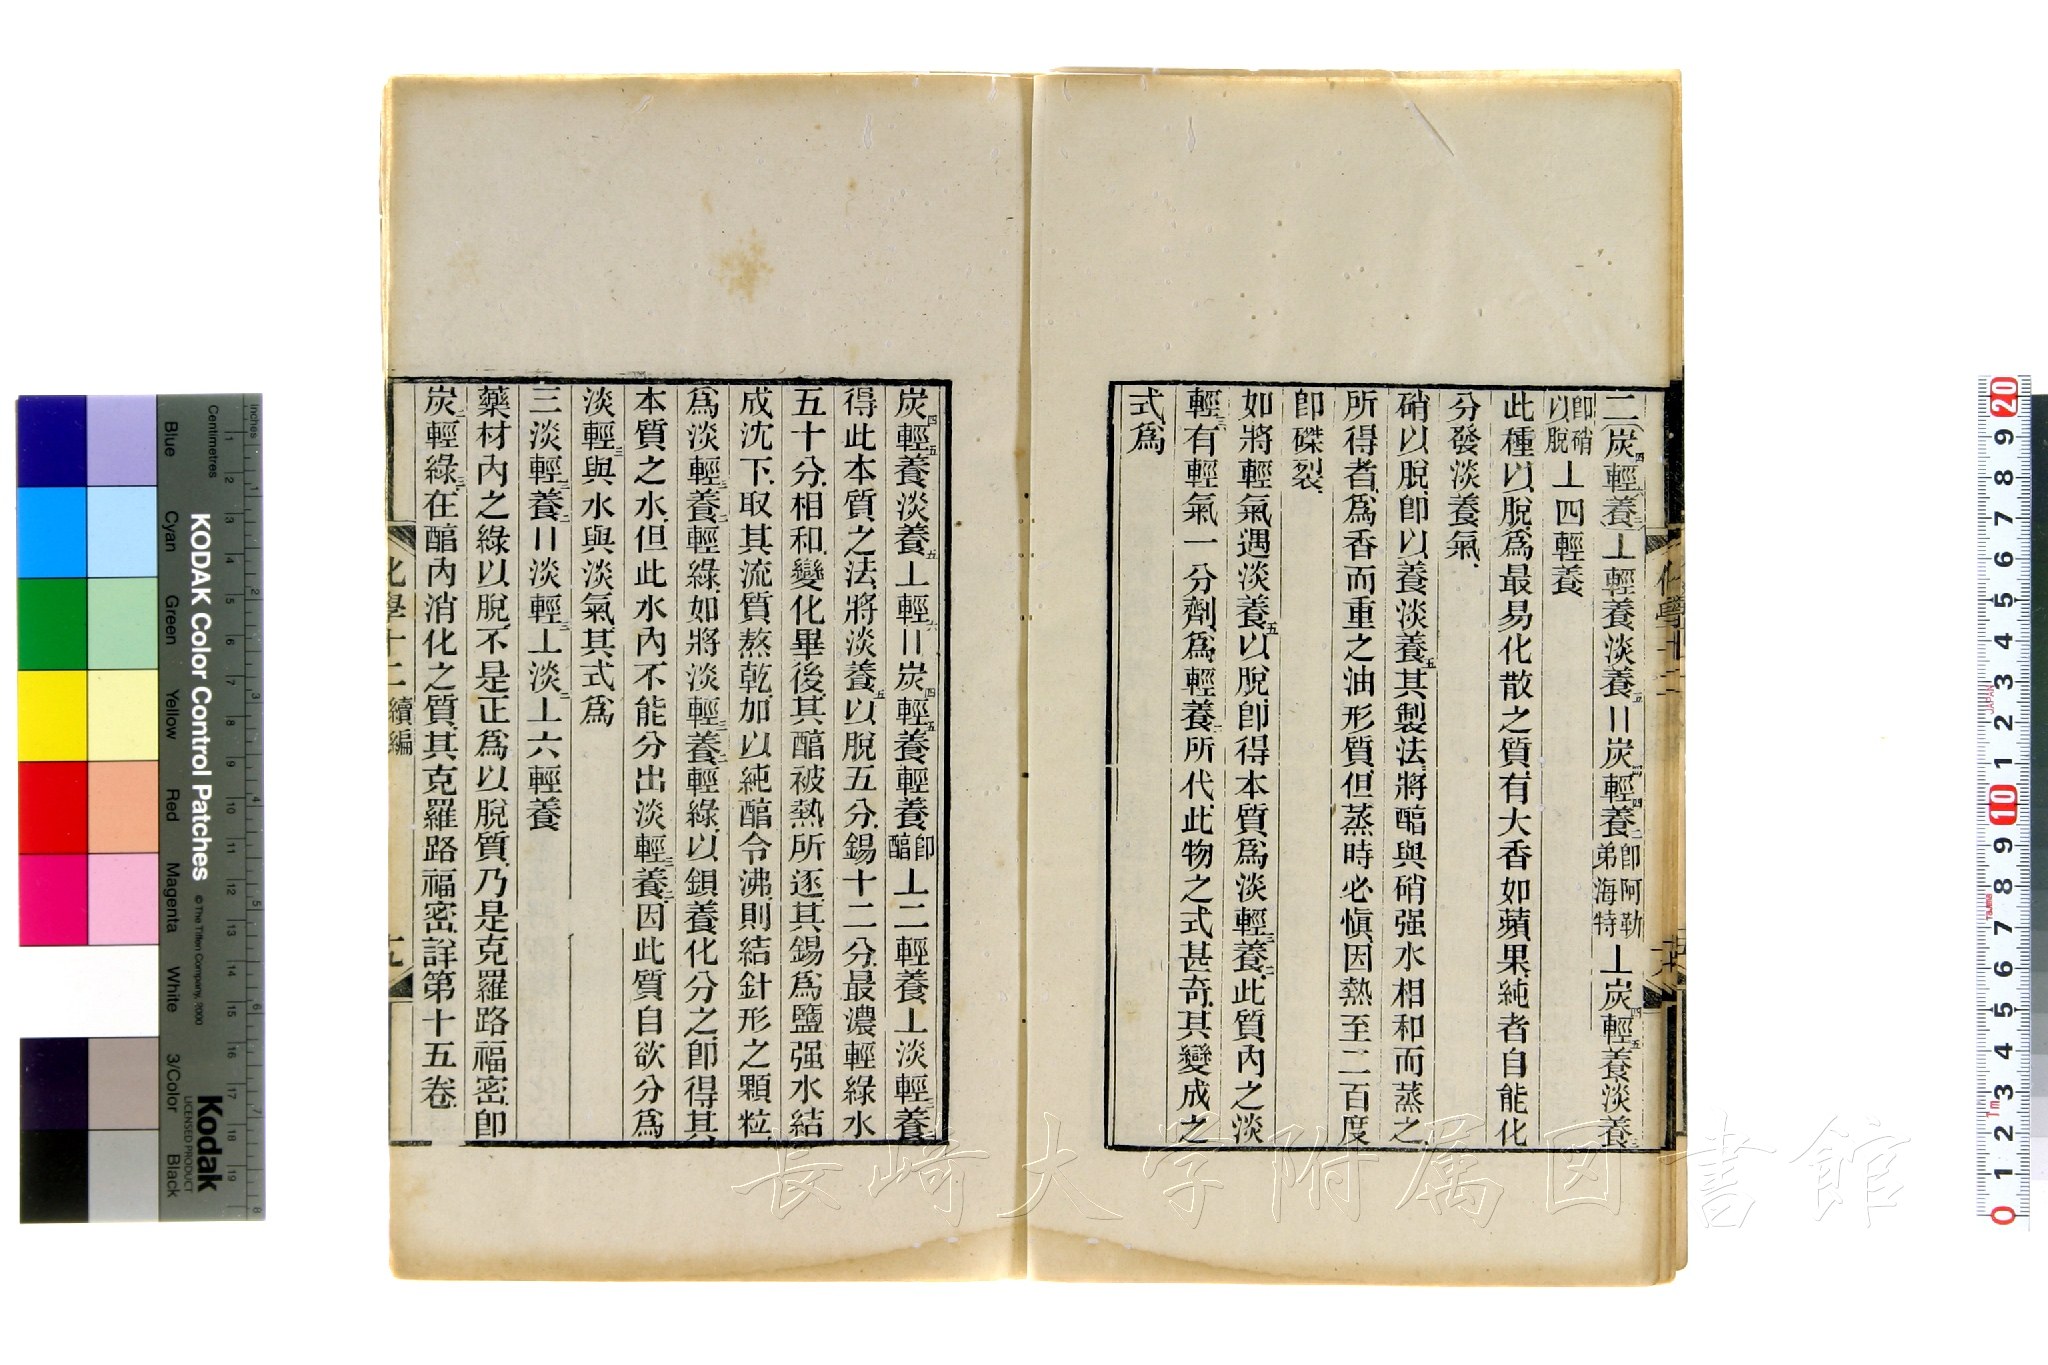 二炭四輕六養二⊥輕養淡養五＝炭四輕四養二卽阿勒弟海特⊥炭四輕五養淡養三
卽硝以脫⊥四輕養
此種以脫爲最易化散之質有大香如蘋果純者自能化
分發淡養氣
硝以脫卽以養淡養五其製法將醕與硝强水相和而蒸之
所得者爲香而重之油形質但蒸時必愼因熱至二百度
卽磔裂
如將輕氣遇淡養五以脫卽得本質爲淡輕三養二此質內之淡
輕三有輕氣一分劑爲輕養二所代此物之式甚奇其變成之
式爲
化學十二
炭四輕五養淡養五⊥輕六＝炭四輕五養輕養卽醕⊥二輕養⊥淡輕三養二
得此本質之法將淡養五以脫五分錫十二分最濃輕綠水
五十分相和變化畢後其醕被熱所逐其錫爲鹽强水結
成沈下取其流質熬乾加以純醕令沸則結針形之顆粒
爲淡輕三養二輕綠如將淡輕三養二輕綠以鋇養化分之卽得其
本質之水但此水內不能分出淡輕三養二因此質自欲分爲
淡輕三與水與淡氣其式爲
三淡輕三養二＝淡輕三⊥淡二⊥六輕養
藥材內之綠以脫不是正爲以脫質乃是克羅路福密卽
炭二輕綠三在醕內消化之質其克羅路福密詳第十五卷
化學十二 續編
十九
KODAK Color Control Patches
© The Tiffen Company, 2000
Kodak
LICENSED PRODUCT
Blue
Cyan
Green
Yellow
Red
Magenta
White
3/Color
Black
Centimetres
inches
長崎大学附属図書館